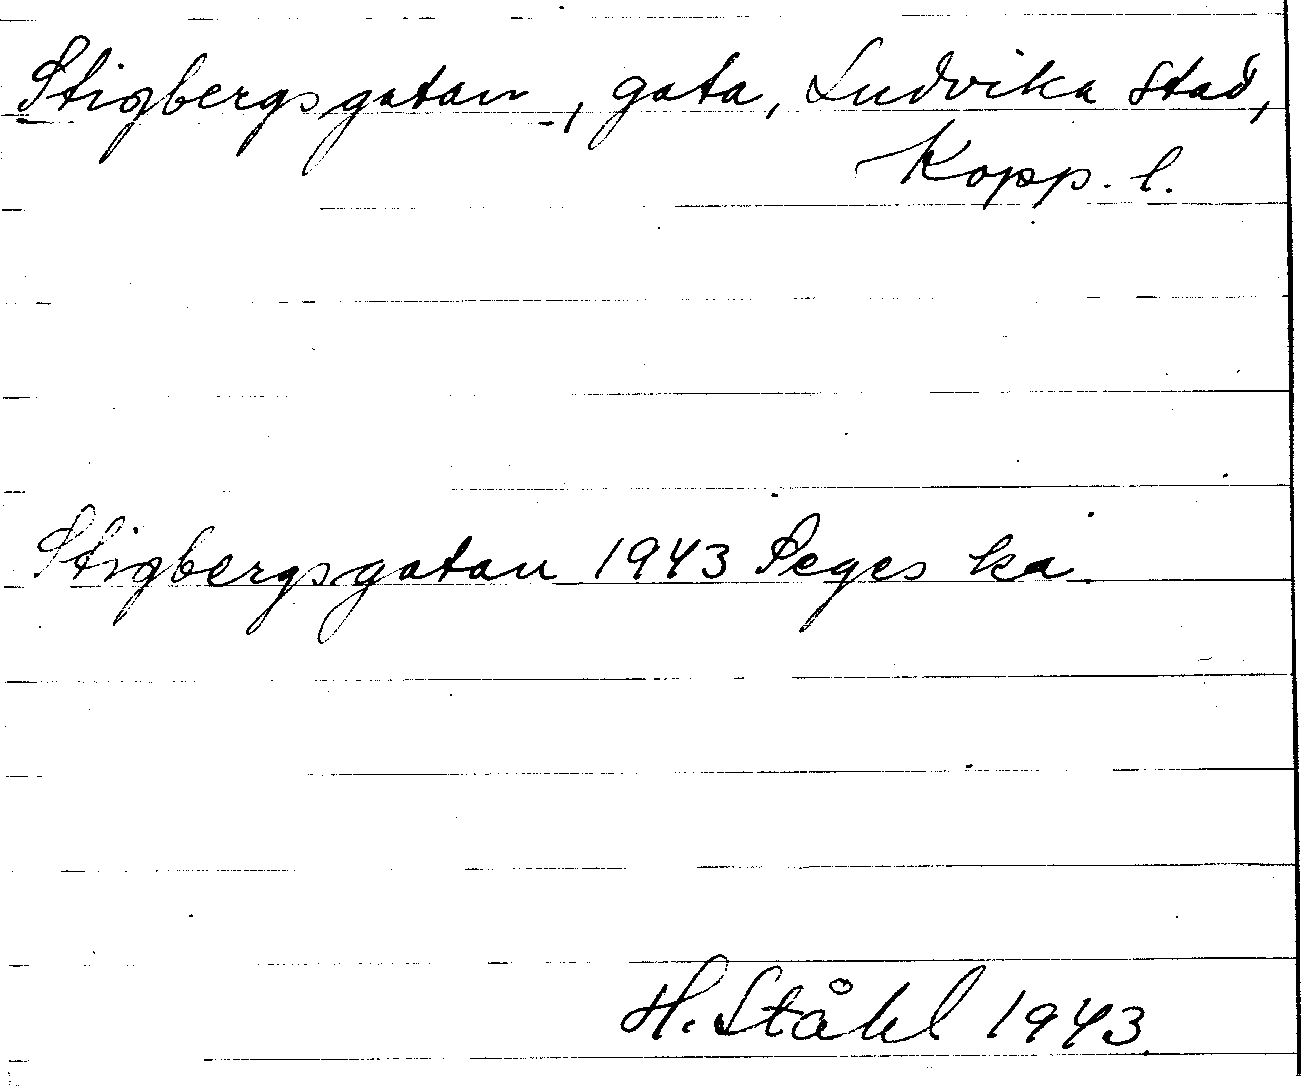 Stigbergsgatan, gata, Ludvika stad,
Kopp. l.
Stigbergsgatan 1943 Seges ka.
H. Ståhl 1943